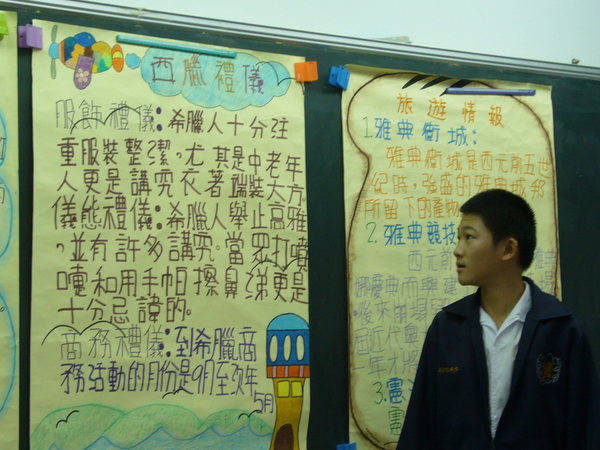 西臘禮儀
服飾禮儀:希臘人十分注
重服裝整潔。尤其是中老年
人更是講究衣著端裝大方。
儀態禮儀:希臘人舉止高雅
,並有許多講究。當眾打噴
嚏和用手帕擦鼻涕更是
十分忌諱的。
商務禮儀:到希臘商
務活動的月份是9月至次年
5月
旅遊情報
1.雅典衛城:
雅典衛城是西元前五世
紀時,強盛的雅典城邦
所留下的產物
2.雅典競技
西元前
慶典而興建
後來崩塌
近代奧
一年才
3.憲
憲